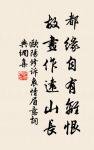 都緣自有離恨
故畫作遠山長
歐陽修訴衷情眉意詞
典網集